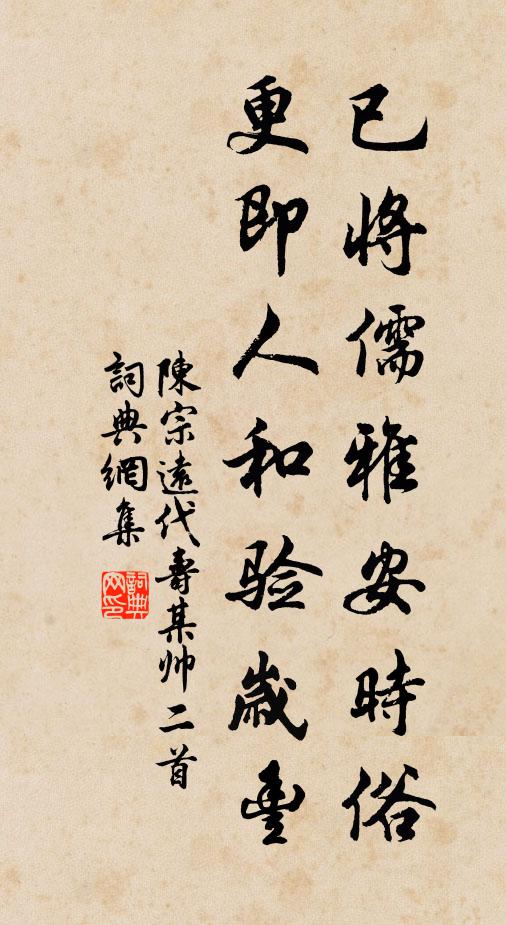 已將儒雅安時俗
更即人和验歲豐
陳宗遠代壽某帅二首
詞典網集
詞典网印